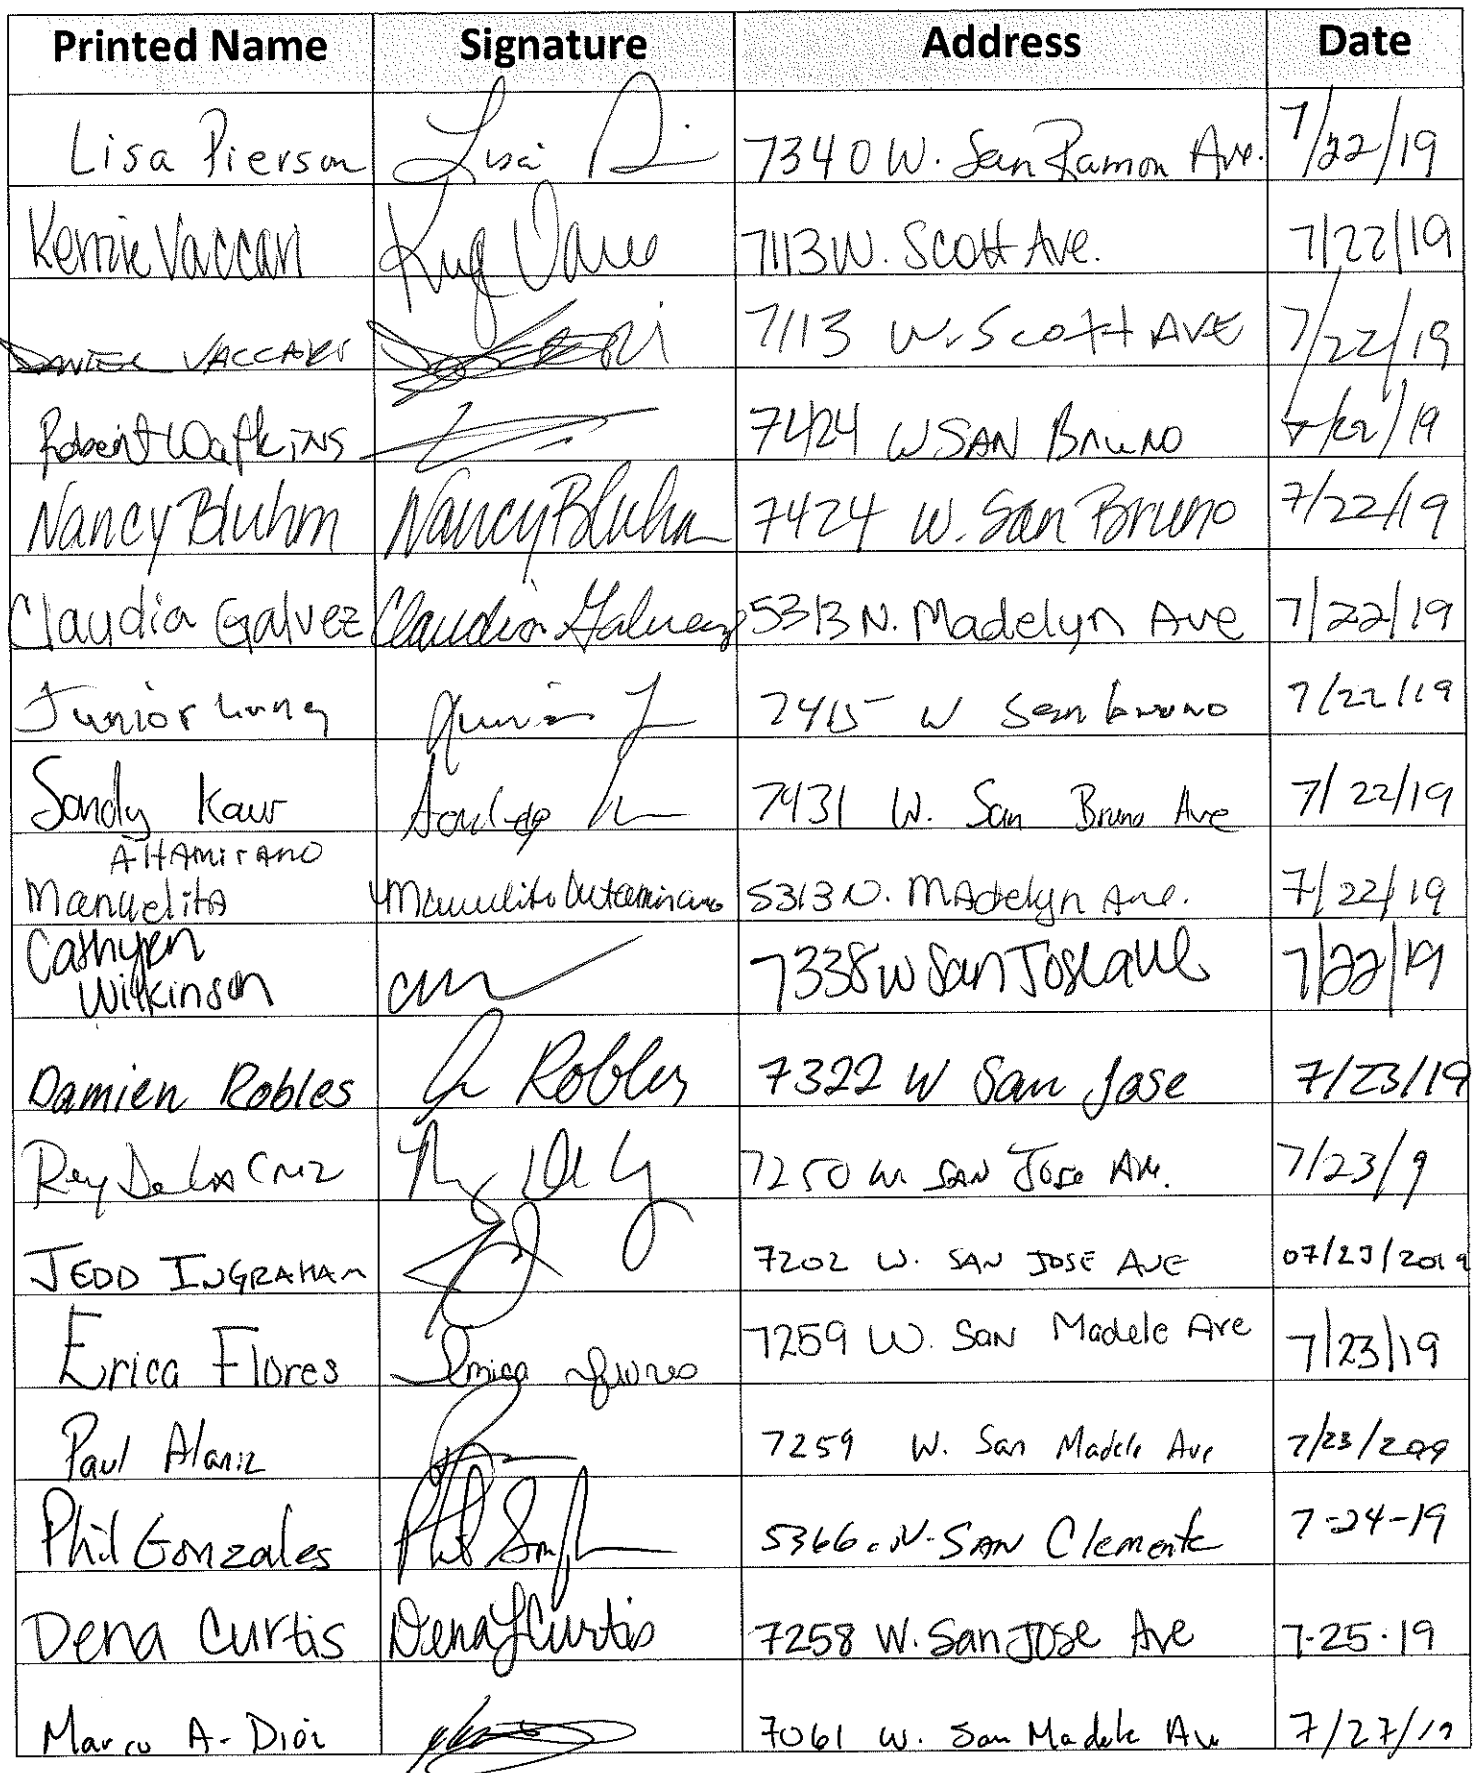 Printed Name Signature Address Date
Lisa Pierson Lisa 7340 W. San Ramon Ave. 7/22/19
Kerrie Vaccari 7113 W. Scott Ave. 7/22/19
DANIEL VACCARI 7113 W. Scott AVE 7/22/19
Robert Watkins 7424 W SAN Bruno 7/22/19
Nancy Bluhm Nancy Bluhm 7424 W. San Bruno 7/22/19
Claudia Galvez Claudia Galvez 5313 N. Madelyn Ave 7/22/19
Junior 7415 W San bruno 7/22/19
Sandy Kaur 7431 W. San Bruno Ave 7/22/19
Altamirano
Manuelita Manuelita Altamirano 5313 N. MAdelyn Ave. 7/22/19
Cathyren
Wilkinson 7338 W San Jose ave 7/22/19
Damien Robles Robles 7322 W San Jose 7/23/19
Rey De La Cruz 7250 W. SAN Jose Ave. 7/23/9
JEDD INGRAHAM 7202 W. SAN JOSE AVE 07/23/2019
Erica Flores Erica Flores 7259 W. San Madele Ave 7/23/19
Paul Alaniz 7259 W. San Madele Ave 7/23/2019
Phil Gonzales Phil 5366. N. SAN Clemente 7-24-19
Dena Curtis Dena L Curtis 7258 W. San JOSE Ave 7-25-19
Marco A. 7061 W. San Madele Av 7/27/19